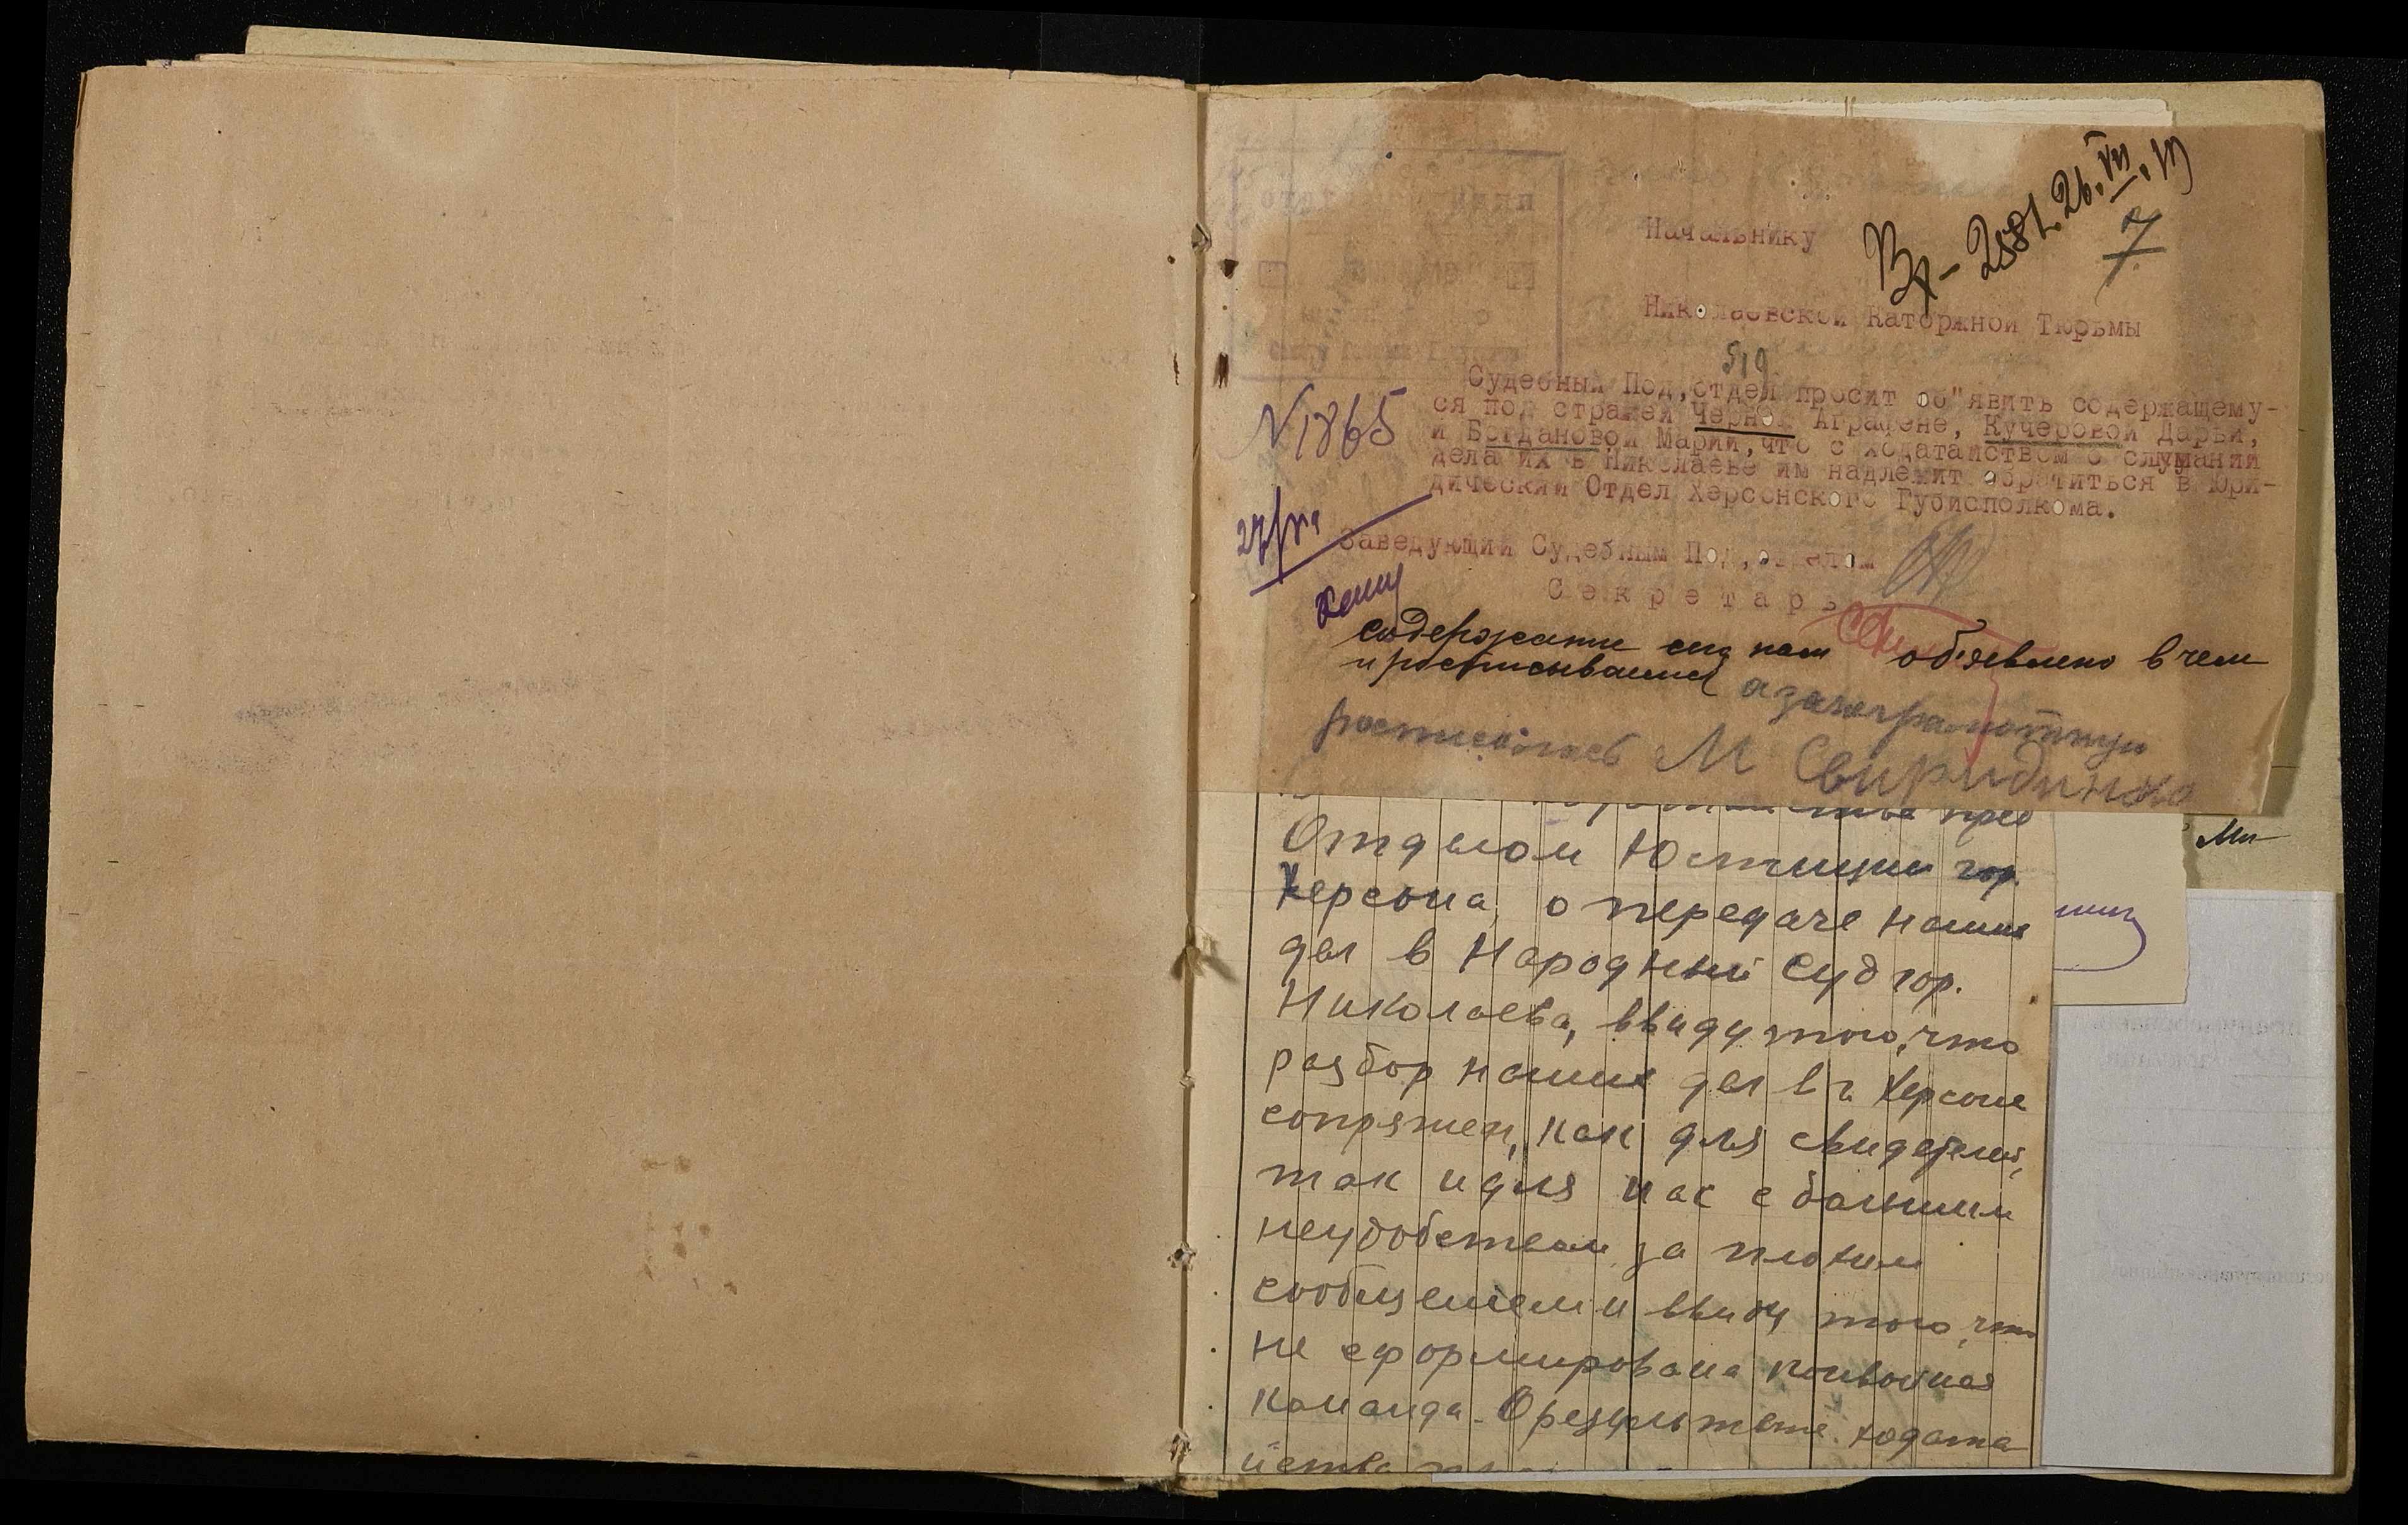 Вх - 2881. 26.VII.19
7
Начальнику
Николаевской Каторжной Тюрьмы
519
Судебный Под,отдел просит об"явить содержащему-
ся под стражей Черной Аграфене, Кучеровой Дарьи,
и Богдановой Марии,что с ходатайством о слушании
дела их в Николаеве им надлежит обратиться в Юри-
дический Отдел Херсонского Губисполкома.
N 1865
27/VII
Заведующий Судебным Под,отделом
Секретарь
содержание сиа нам объявлено в чем
и росписываемся
а за неграмотную
росписалась М Свиридинко
пред
Отделом Юстиции гор.
Херсона, о передаче наших
дел в Народный Суд гор.
Николаева, ввиду того, что
разбор наших дел в г. Херсоне
сопряжен, как для свидетелей,
так и для нас с большим
неудобством за плохим
сообщением и ввиду того, что
не сформирована конвойная
команда. О результате ходата
йства
Ми-